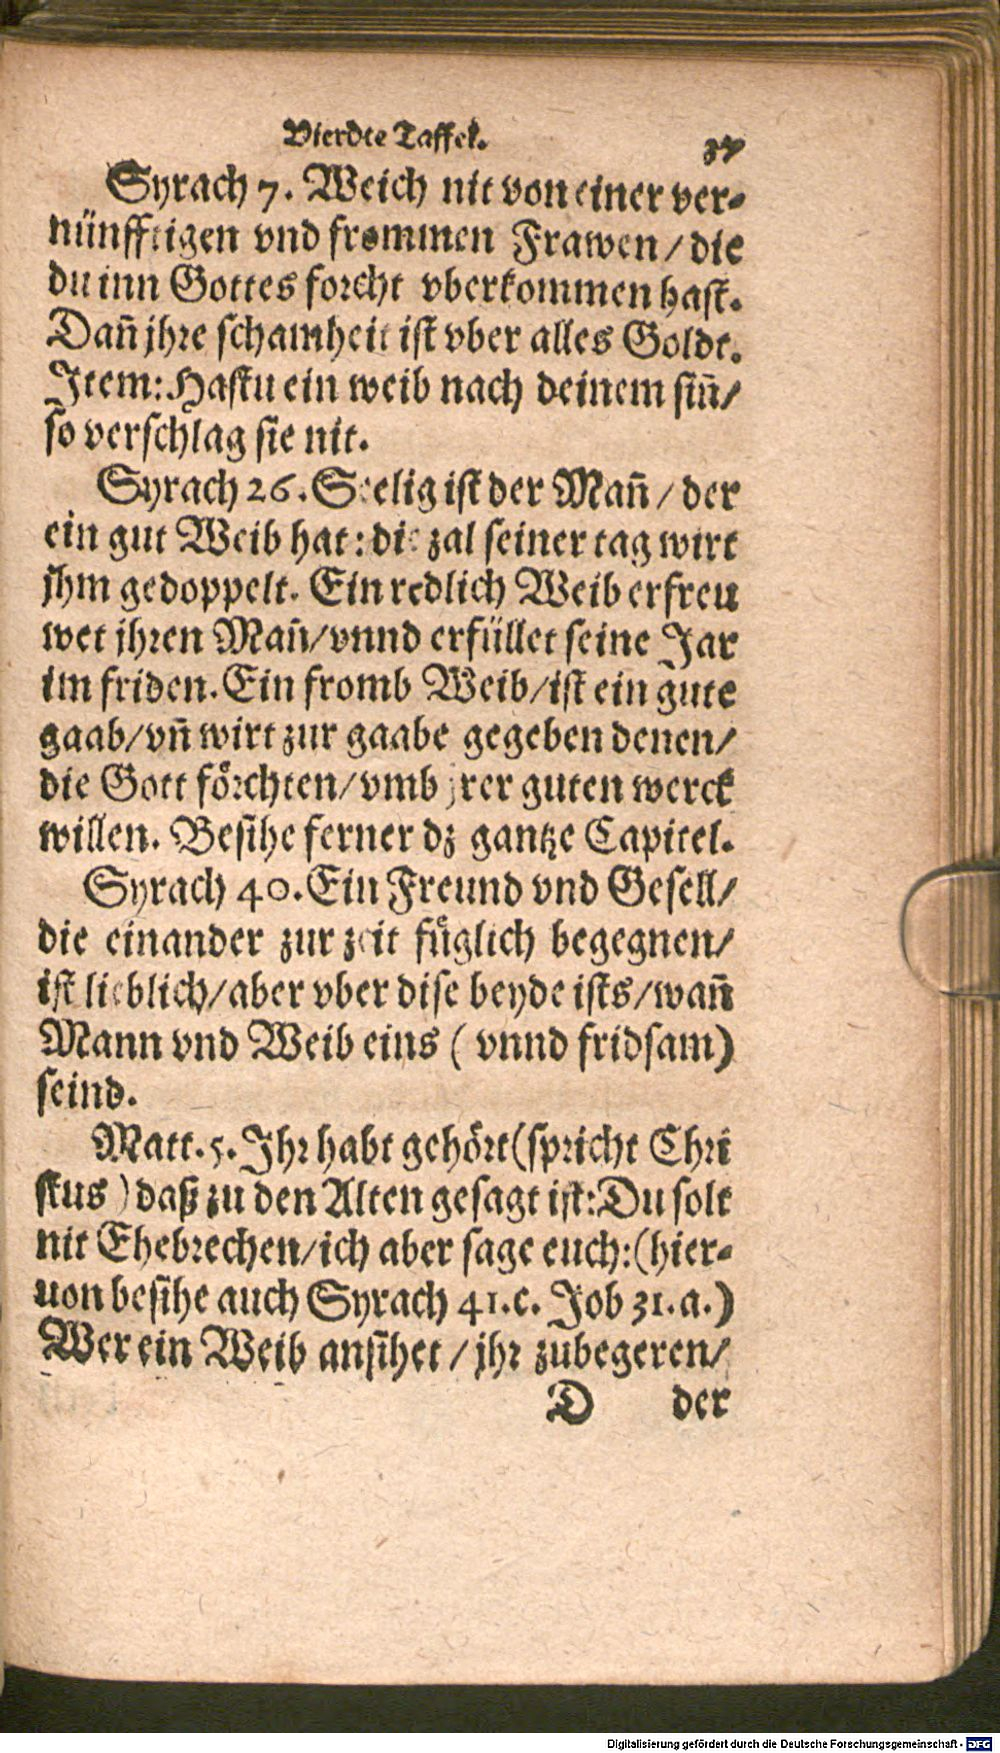 Vierdte Taffel.
Syrach 7. Weich nit von einer ver-
nünfftigen vnd frommen Frawen / die
du inn Gottes forcht vberkommen hast.
Dañ jhre schamheit ist vber alles Goldt.
Item: Hastu ein weib nach deinem siñ/
so verschlag sie nit.
Syrach 26. Seelig ist der Mañ / der
ein gut Weib hat: die zal seiner tag wirt
jhm gedoppelt. Ein redlich Weib erfreu
wet jhren Mañ/vnnd erfüllet seine Jar
im friden. Ein fromb Weib/ist ein gute
gaab/vñ wirt zur gaabe gegeben denen/
die Gott förchten/vmb jrer guten werck
willen. Besihe ferner dz gantze Capitel.
Syrach 40. Ein Freund vnd Gesell/
die einander zur zeit füglich begegnen/
ist lieblich/aber vber dise beyde ists/wañ
Mann vnd Weib eins ( vnnd fridsam)
seind.
Matt. 5. Ihr habt gehört(spricht Chri
stus) daß zu den Alten gesagt ist: Du solt
nit Ehebrechen/ich aber sage euch:(hier-
uon besihe auch Syrach 41. c. Job 31. a.)
Wer ein Weib ansihet / jhr zubegeren/
D der
Digitalisierung gefördert durch die Deutsche Forschungsgemeinschaft - DFG